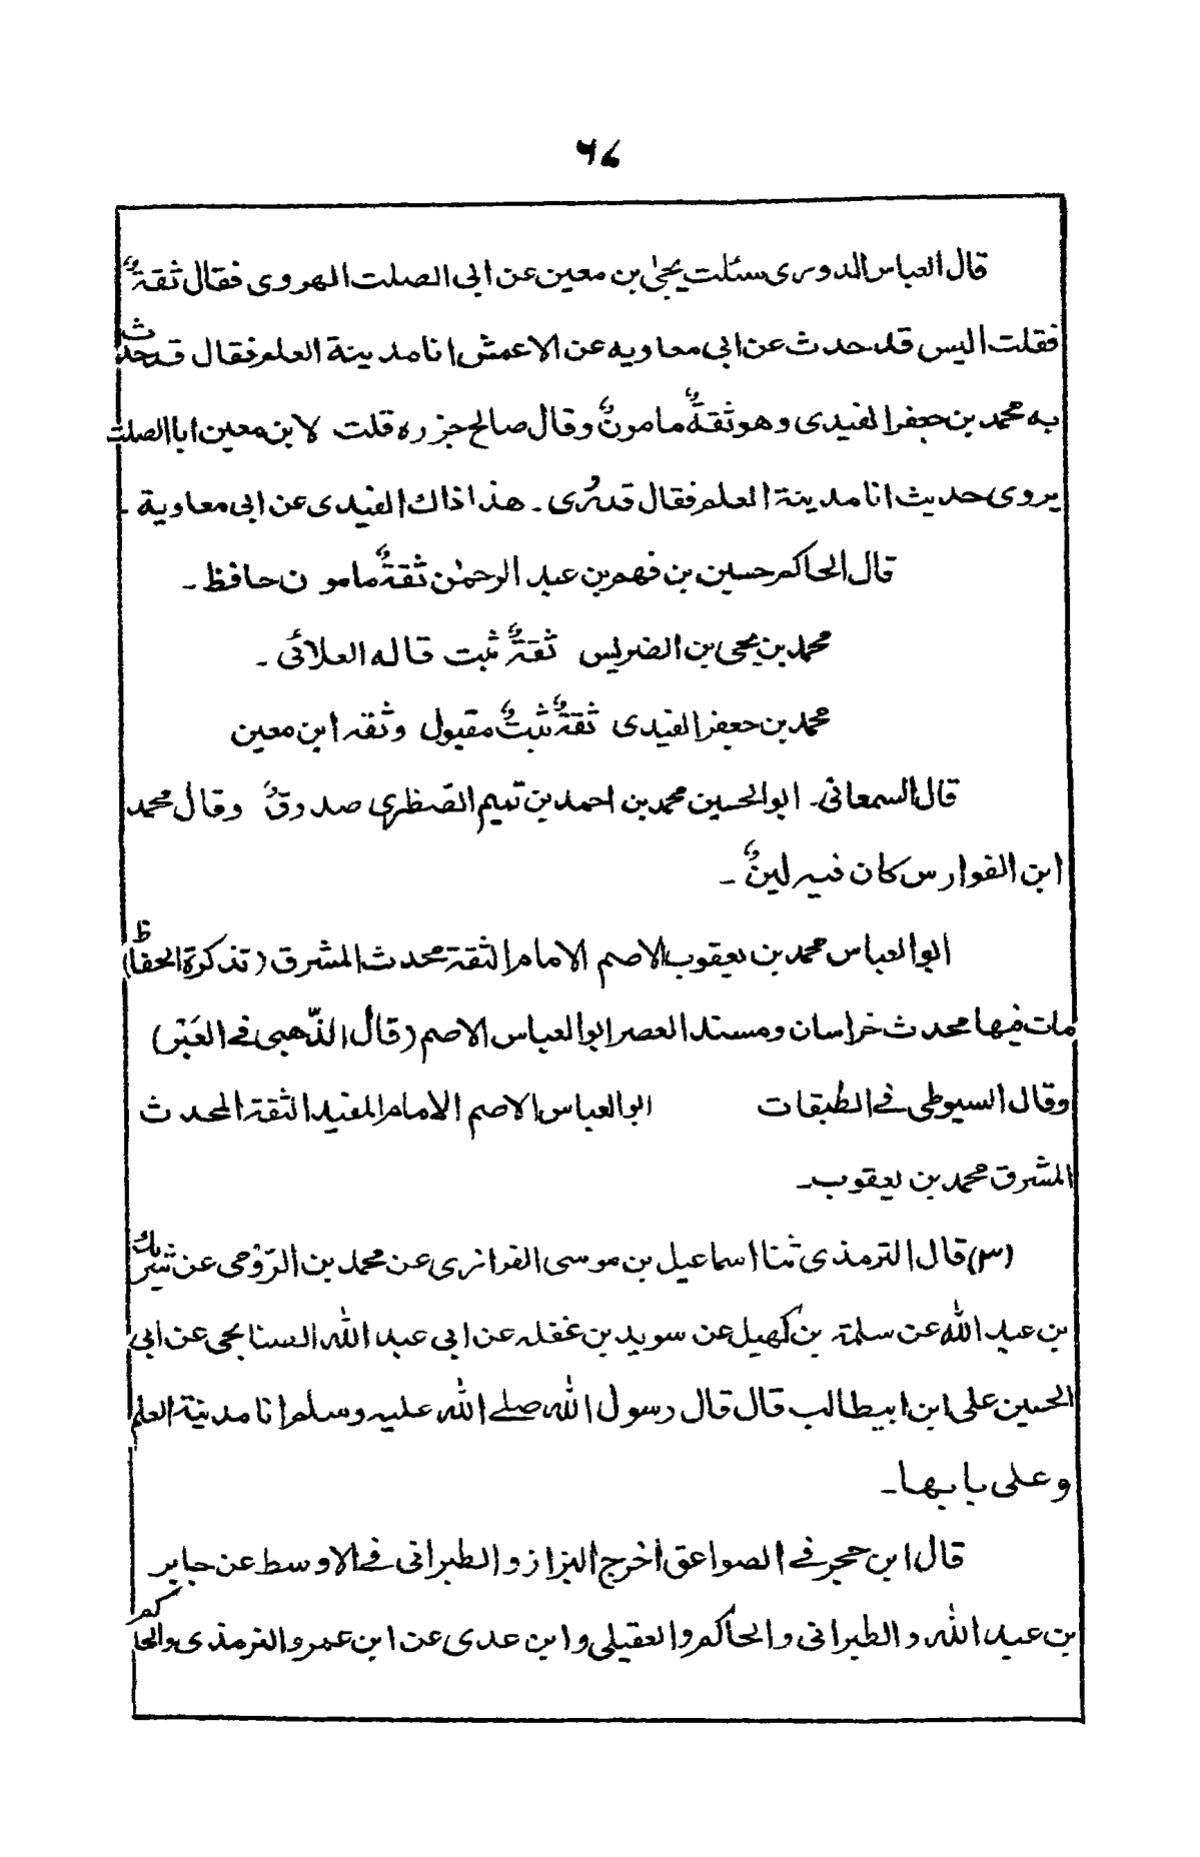 ۹۴
قال العباس الدوری سئلت یحیٰی بن معین عن ابی الصلت الهروی فقال ثقةٌ
فقلت الیس قد حدث عن ابی معاویه عن الاعمش انا مدینة العلم فقال قد حدث
به محمد بن جعفر الفیدی وهو ثقةٌ مامونٌ وقال صالح جزره قلت لابن معین ابا الصلت
یروی حدیث انا مدینة العلم فقال قد رُی ۔ هذا ذاك الفیدی عن ابی معاویة ۔
قال الحاکم حسین بن فهم بن عبد الرحمٰن ثقةٌ مامون حافظ ۔
محمد بن یحی بن الضریس ثقةٌ ثبت قاله العلائی ۔
محمد بن جعفر الفیدی ثقةٌ ثبتٌ مقبول وثقه ابن معین
قال السمعانی۔ ابوالحسین محمد بن احمد بن تمیم القنطری صدوقٌ وقال محمد
ابن الفوارس کان فیه لینٌ ۔
ابوالعباس محمد بن یعقوب الاصم الامام الثقة محدث المشرق (تذکرة الحفاظ)
مات فیها محدث خراسان ومسند العصر ابوالعباس الاصم (قال الذّهبی فے العَبْر)
وقال السیوطی فے الطبقات ابوالعباس الاصم الامام المفید الثقة المحدث
المشرق محمد بن یعقوب۔
(۳) قال الترمذی ثنا اسماعیل بن موسی الفزاری عن محمد بن الرّومی عن شریك
بن عبد الله عن سلمة بن کهیل عن سوید بن غفله عن ابی عبد الله السنابحی عن ابی
الحسین علی ابن ابیطالب قال قال رسول الله صلے الله علیه وسلم انا مدینة العلم
وعلی بابها۔
قال ابن حجر فے الصواعق اخرج البزاز و الطبرانی فے الاوسط عن جابر
بن عبد الله و الطبرانی و الحاکم والعقیلی و ابن عدی عن ابن عمر و الترمذی والحاکم